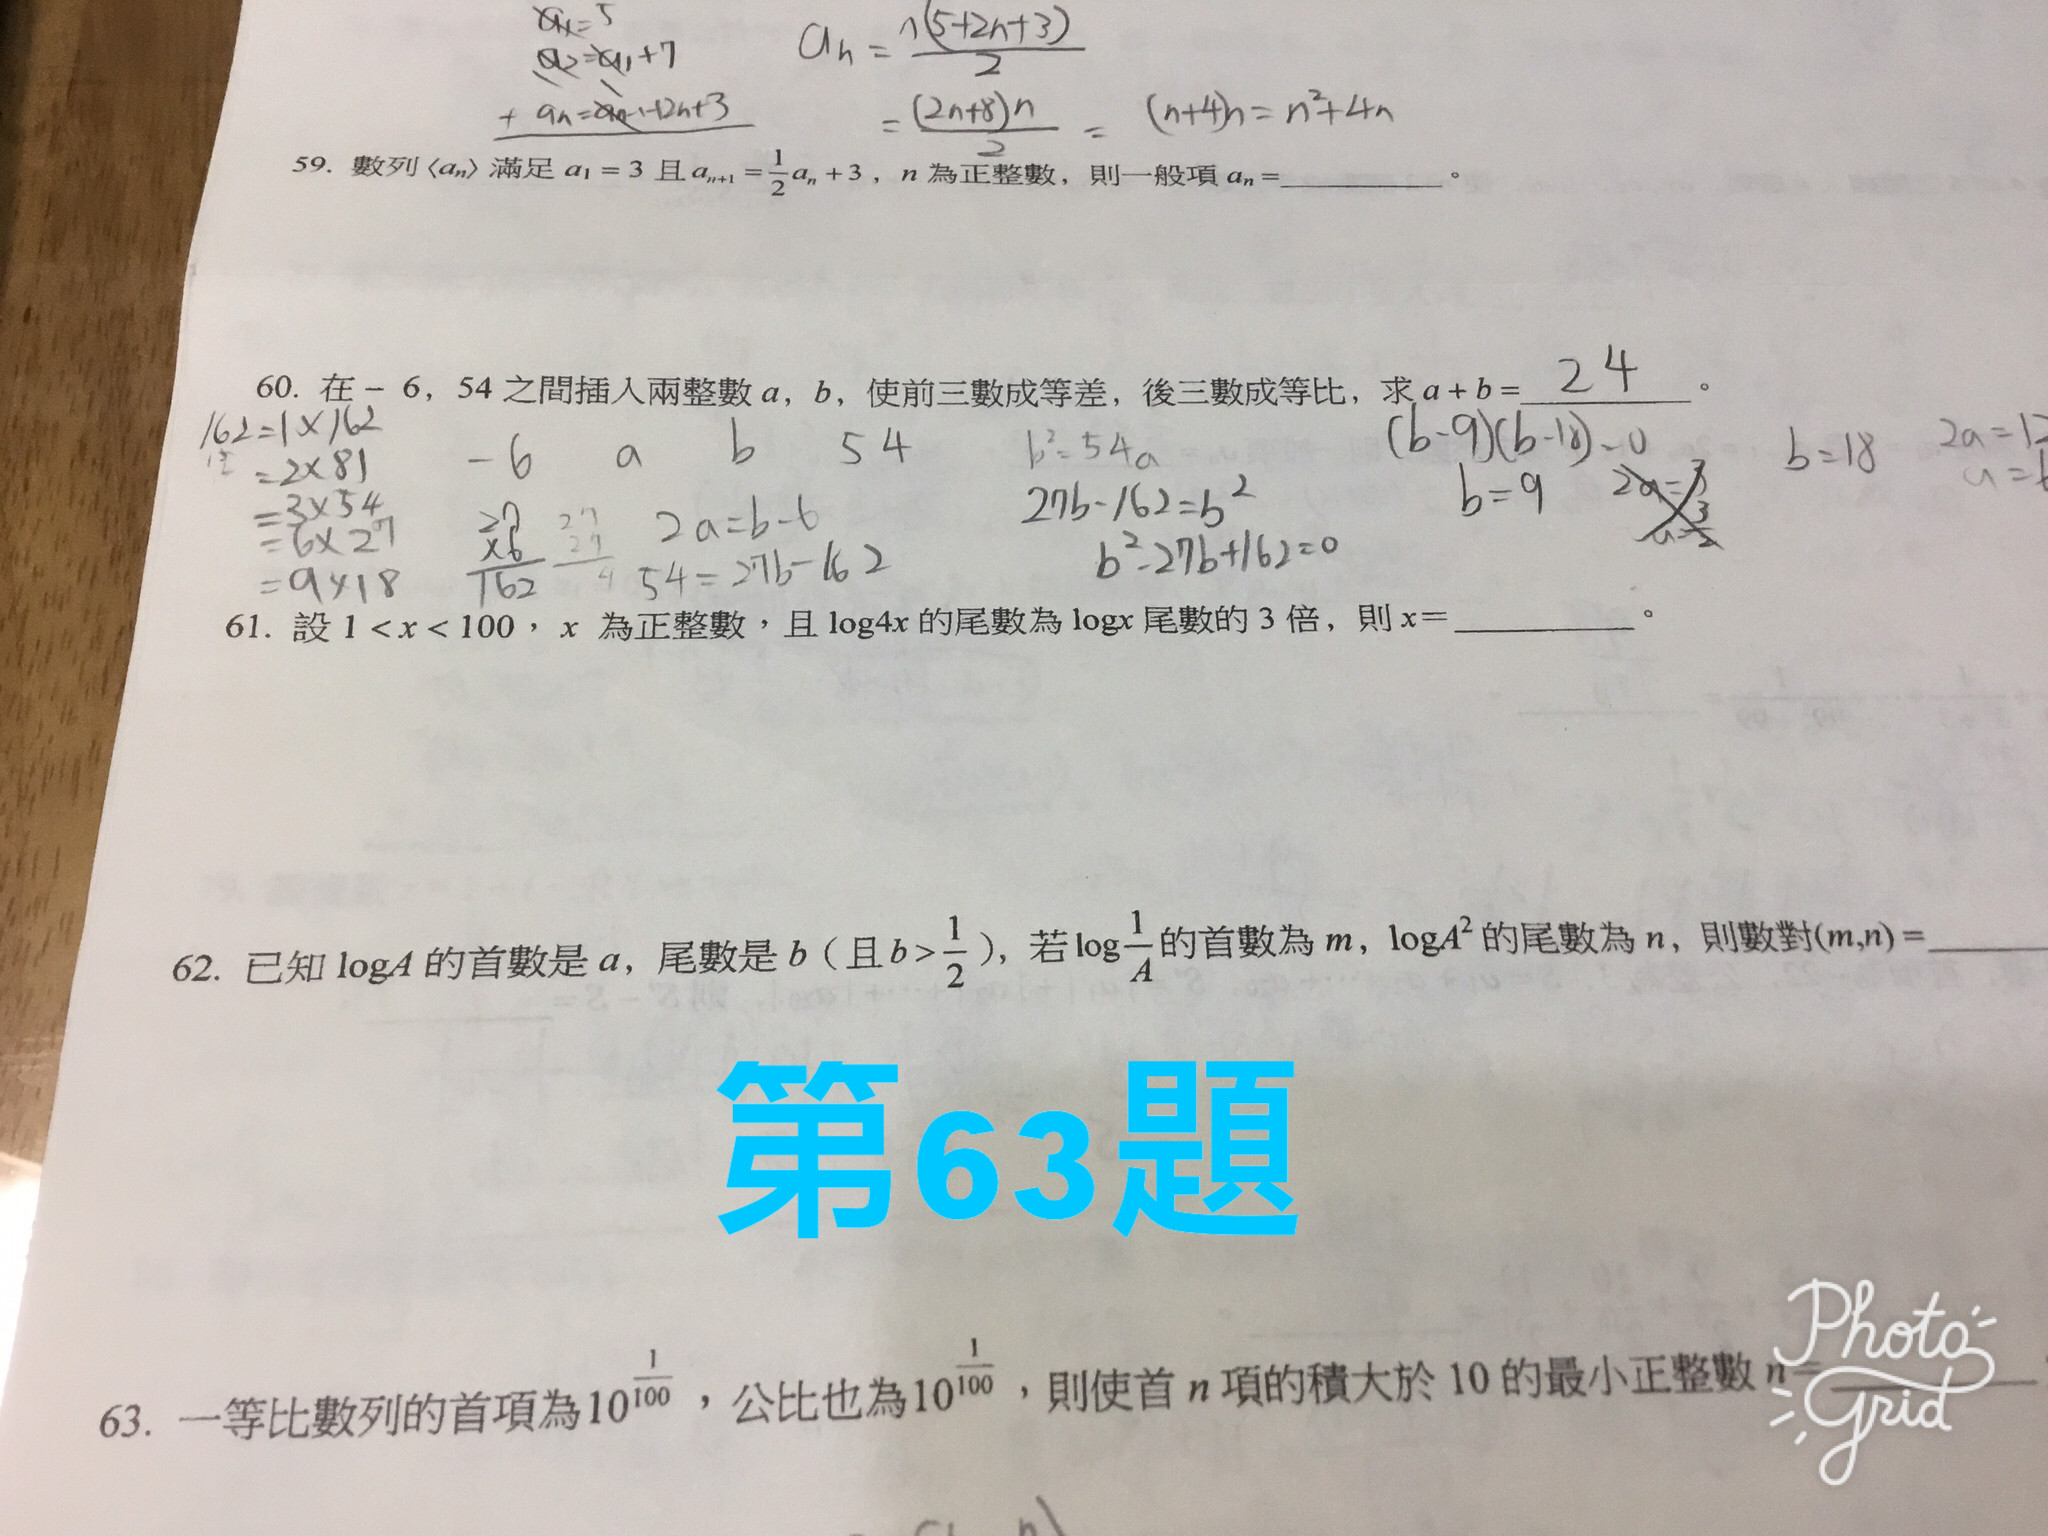 a₁=5
a₂=a₁+7
+ aₙ=aₙ₋₁+2n+3
aₙ = n(5+2n+3)/2
= (2n+8)n/2 = (n+4)n = n²+4n
59. 數列⟨aₙ⟩滿足 a₁ = 3 且 aₙ₊₁ = 1/2 aₙ + 3，n 為正整數，則一般項 aₙ = ________。
60. 在 – 6，54 之間插入兩整數 a，b，使前三數成等差，後三數成等比，求 a + b = 24。
162=1×162
=2×81
=3×54
=6×27
=9×18
-6 a b 54
27
×6
162
27
4
2a=b-6
54=27b-162
b²=54a
27b-162=b²
b²-27b+162=0
(b-9)(b-18)=0
b=9
2a=3
b=18
2a=12
61. 設 1 < x < 100，x 為正整數，且 log4x 的尾數為 logx 尾數的 3 倍，則 x= ________。
62. 已知 logA 的首數是 a，尾數是 b（且 b > 1/2），若 log 1/A 的首數為 m，logA² 的尾數為 n，則數對(m,n) = ________
第63題
63. 一等比數列的首項為 10^(1/100)，公比也為 10^(1/100)，則使首 n 項的積大於 10 的最小正整數 n = ________
Photo
Grid